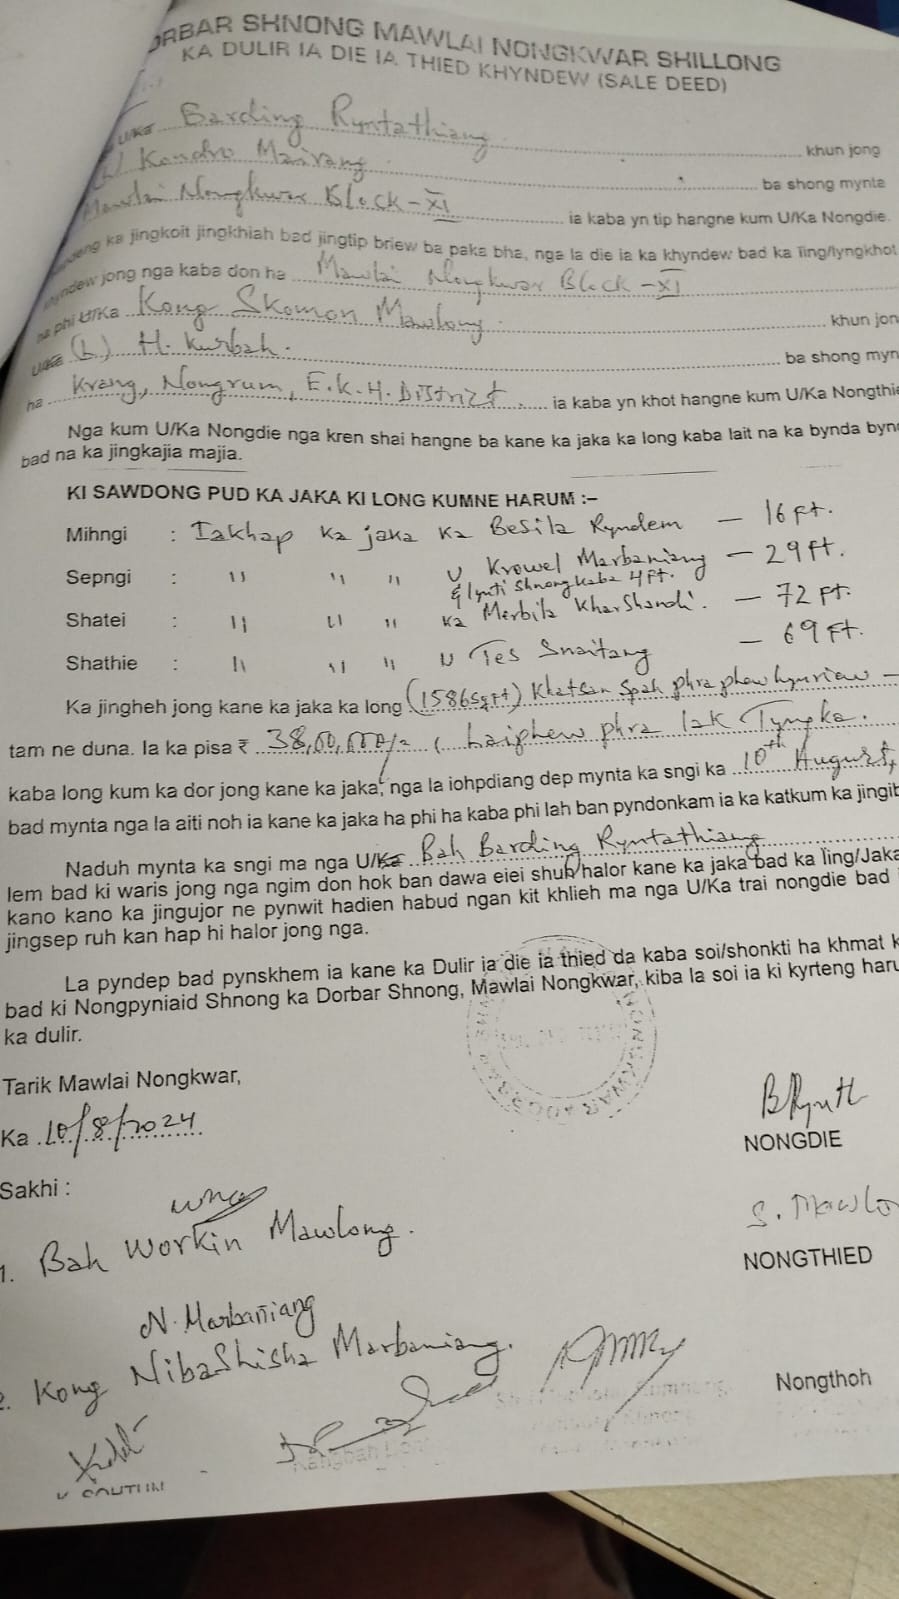 ORBAR SHNONG MAWLAI NONGKWAR SHILLONG
KA DULIR IA DIE IA THIED KHYNDEW (SALE DEED)
U/Ka Barding Ryntathiang khun jong
(L) Kondro Mairang ba shong mynta
Mawlai Nongkwar Block-XI ia kaba yn tip hangne kum U/Ka Nongdie.
ka jingkoit jingkhiah bad jingtip briew ba paka bha, nga la die ia ka khyndew bad ka ling/lyngkhot
khyndew jong nga kaba don ha Mawlai Nongkwar Block-XI
na phi U/Ka Kong Skomon Mawlong khun jon
U/Ka (L) H. Kurbah. ba shong myn
ha Krang, Nongrum, E.K.H. District. ia kaba yn khot hangne kum U/Ka Nongthie
Nga kum U/Ka Nongdie nga kren shai hangne ba kane ka jaka ka long kaba lait na ka bynda byn
bad na ka jingkajia majia.
KI SAWDONG PUD KA JAKA KI LONG KUMNE HARUM :–
Mihngi : Iakhap ka jaka ka Besila Ryndem – 16 ft.
Sepngi : " " " U Krowel Marbaniang – 29 ft.
& lynti Shnong kaba 4 ft.
Shatei : " " " ka Merbila Kharshandi. – 72 ft.
Shathie : " " " U Tes Snaitang – 69 ft.
Ka jingheh jong kane ka jaka ka long (1586 Sq ft) Khatsan Spah phra phew hynriew –
tam ne duna. Ia ka pisa ₹ 38,00,000/= ( Laiphew phra lak Tyngka.
kaba long kum ka dor jong kane ka jaka, nga la iohpdiang dep mynta ka sngi ka 10th August,
bad mynta nga la aiti noh ia kane ka jaka ha phi ha kaba phi lah ban pyndonkam ia ka katkum ka jingib
Naduh mynta ka sngi ma nga U/Ka Bah Barding Ryntathiang
lem bad ki waris jong nga ngim don hok ban dawa eiei shuh halor kane ka jaka bad ka ling/Jaka
kano kano ka jingujor ne pynwit hadien habud ngan kit khlieh ma nga U/Ka trai nongdie bad
jingsep ruh kan hap hi halor jong nga.
La pyndep bad pynskhem ia kane ka Dulir ia die ia thied da kaba soi/shonkti ha khmat k
bad ki Nongpyniaid Shnong ka Dorbar Shnong, Mawlai Nongkwar, kiba la soi ia ki kyrteng haru
ka dulir.
Tarik Mawlai Nongkwar,
Ka 10/8/2024
NONGDIE
Sakhi :
S. Mawlo
1. Bah Workin Mawlong.
NONGTHIED
N. Marbaniang
2. Kong Nibashisha Marbaniang.
Nongthoh